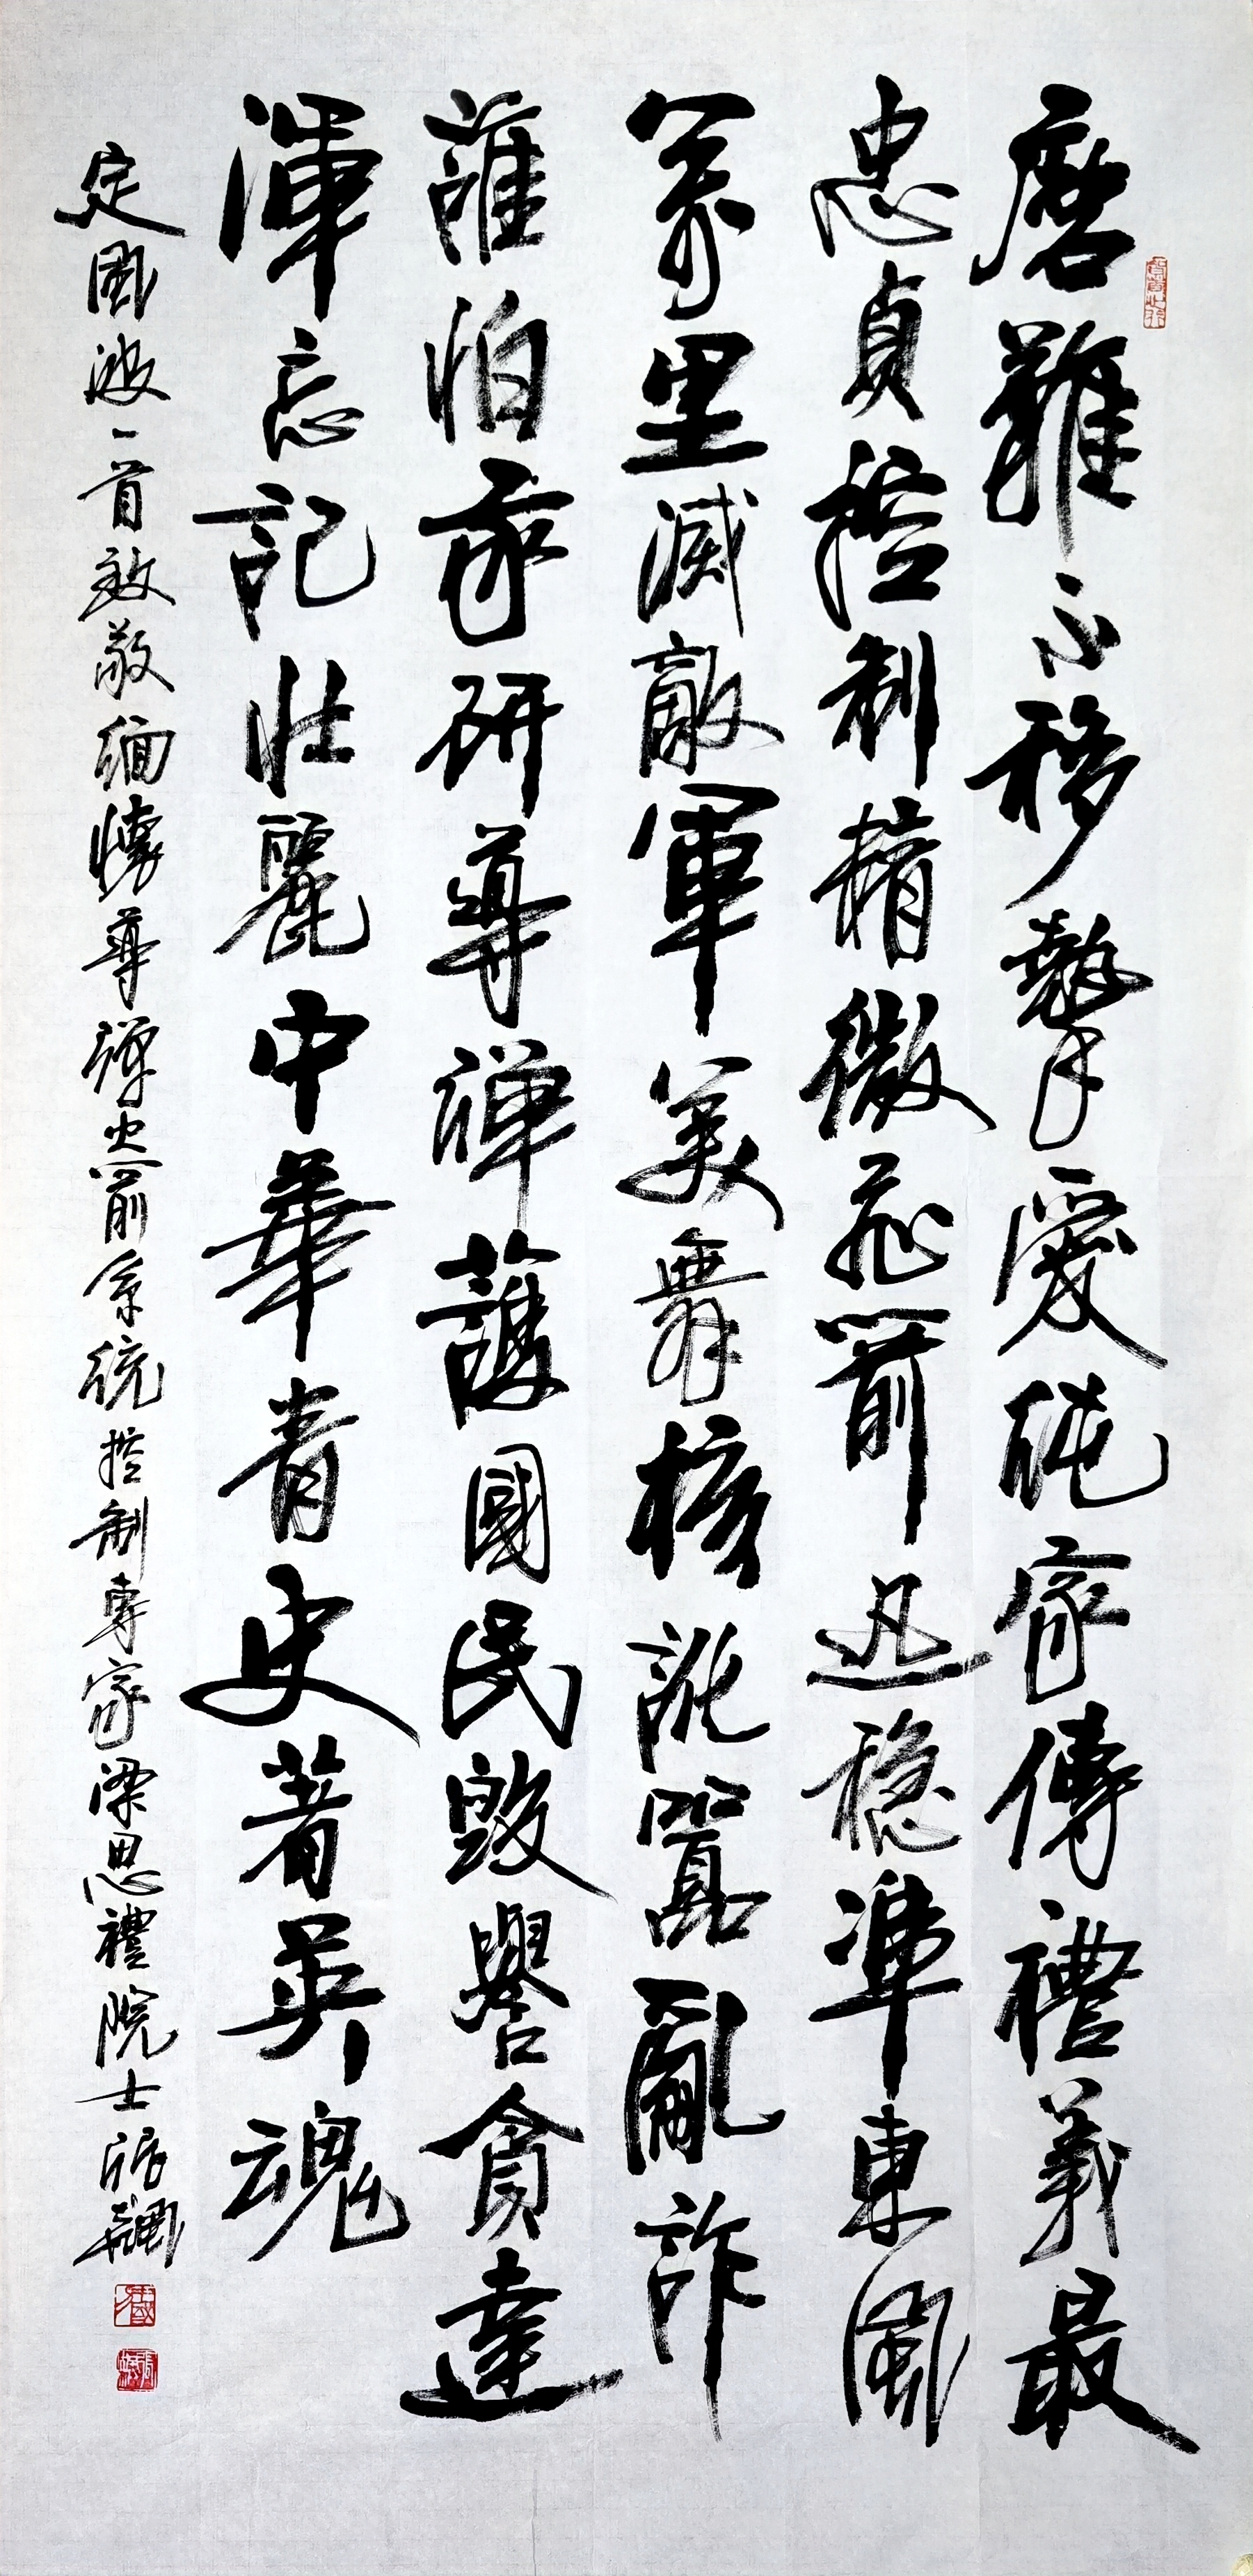 磨難不移摯愛純家傳禮義最
忠貞控制精微飛箭迅穩準東風
萬里滅敵軍美舞核訛囂亂詐
誰怕家研導彈護國民毀譽貪達
渾忘記壯麗中華青史著英魂
定風波一首致敬緬懷導彈火箭系統控制專家梁思禮院士張